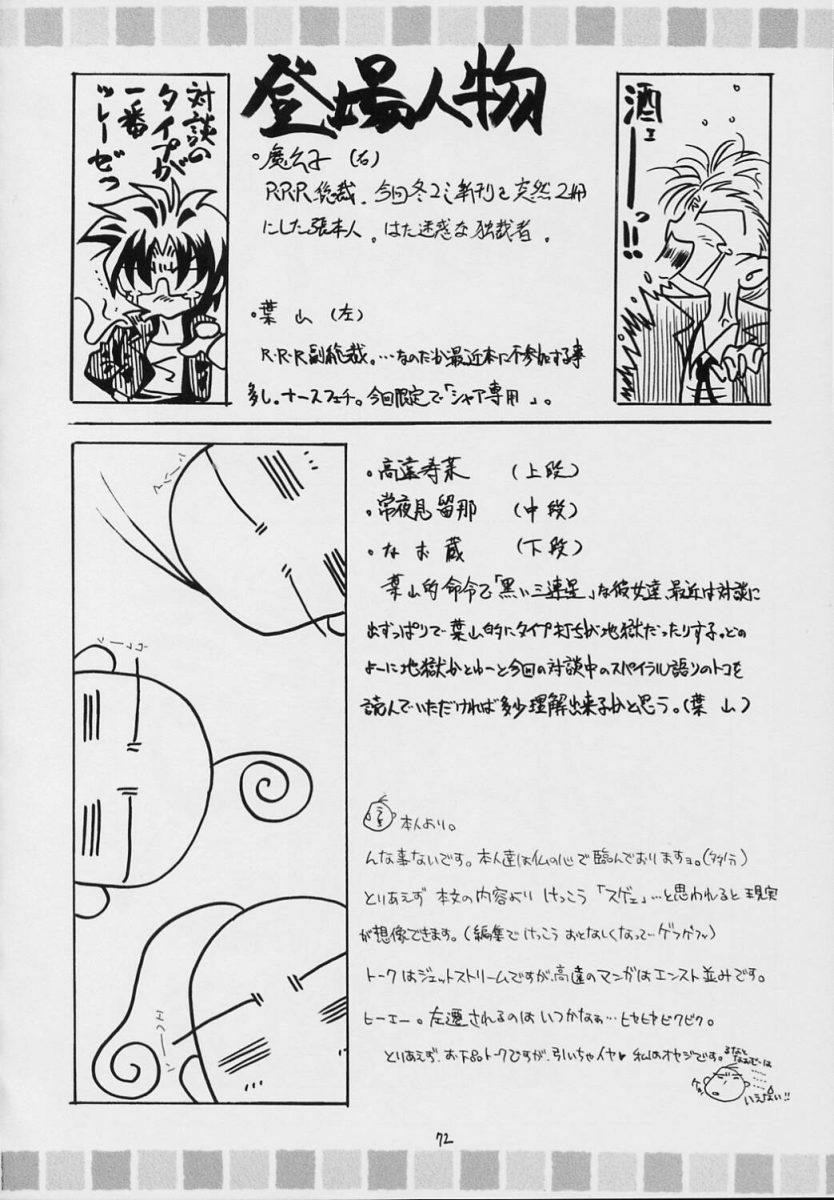 登場人物
酒ェーーっ!!
対談の
タイプが
一番
ツレーぜっ
・魔公子（右）
R.R.R.総裁。今回冬コミ新刊を突然2冊
にした張本人。はた迷惑な独裁者。
・葉山（左）
R.R.R.副総裁。…なのだが最近本に不参加する事
多し。ナースフェチ。今回限定で「シャア専用」。
・高遠寿菜　（上段）
・常夜見留那　（中段）
・なお蔵　（下段）
葉山的命令で「黒い三連星」な彼女達、最近は対談に
出ずっぱりで葉山的にタイプ打ちが地獄だったりする。どの
ように地獄かとゆーと今回の対談中のスパイラル語りのトコを
読んでいただければ多少理解出来るかと思う。（葉山）
本人より。
んな事ないです。本人達は仏の心で臨んでおりますョ。（タブン）
とりあえず 本文の内容より けっこう「スゲェ」…と思われると現実
が想像できます。（編集でけっこう おとなしくなって…ゲフゲフッ）
トークはジェットストリームですが、高遠のマンガはエンスト並みです。
ヒーエー。左遷されるのは いつかなぁ…ヒヤヒヤビクビク。
とりあえず、お下品トークですが、引いちゃイヤ♥ 私はオヤジです。
いえない!!
72